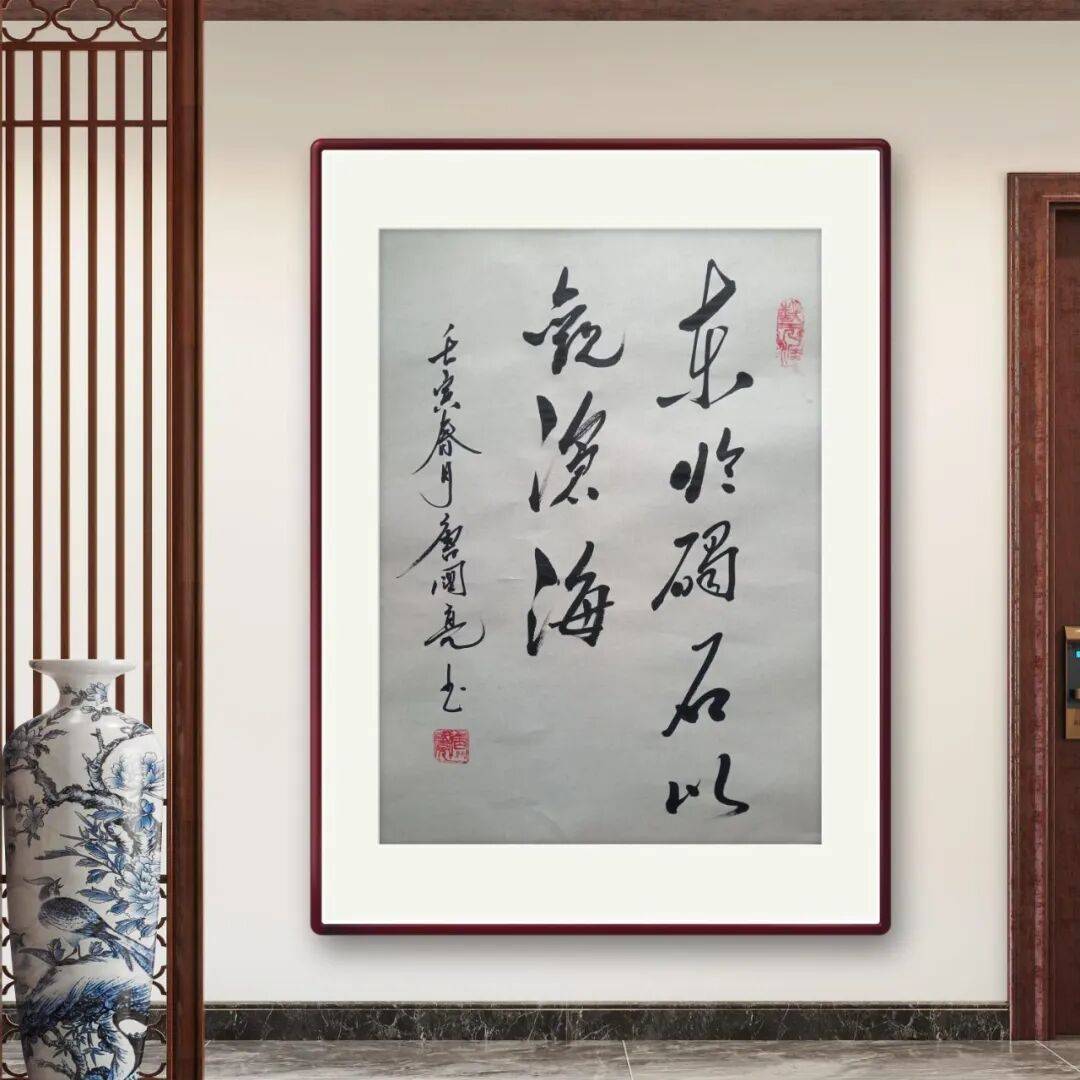 东临碣石以
觀滄海
壬寅春月唐亮书